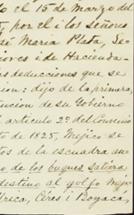 do el 15 de Marzo del
, por el i los Señores
sé Maria Plata, Se-
iores i de Hacienda
las deducciones que se
cion: dijo de la primera,
tucion de su Gobierno
l articulo 2º del Convenio
to de 1825, Mejico se
tos de la escuadra au
o de los buques
destino al golfo Meji
Ureca, Ceres i Boyaca,